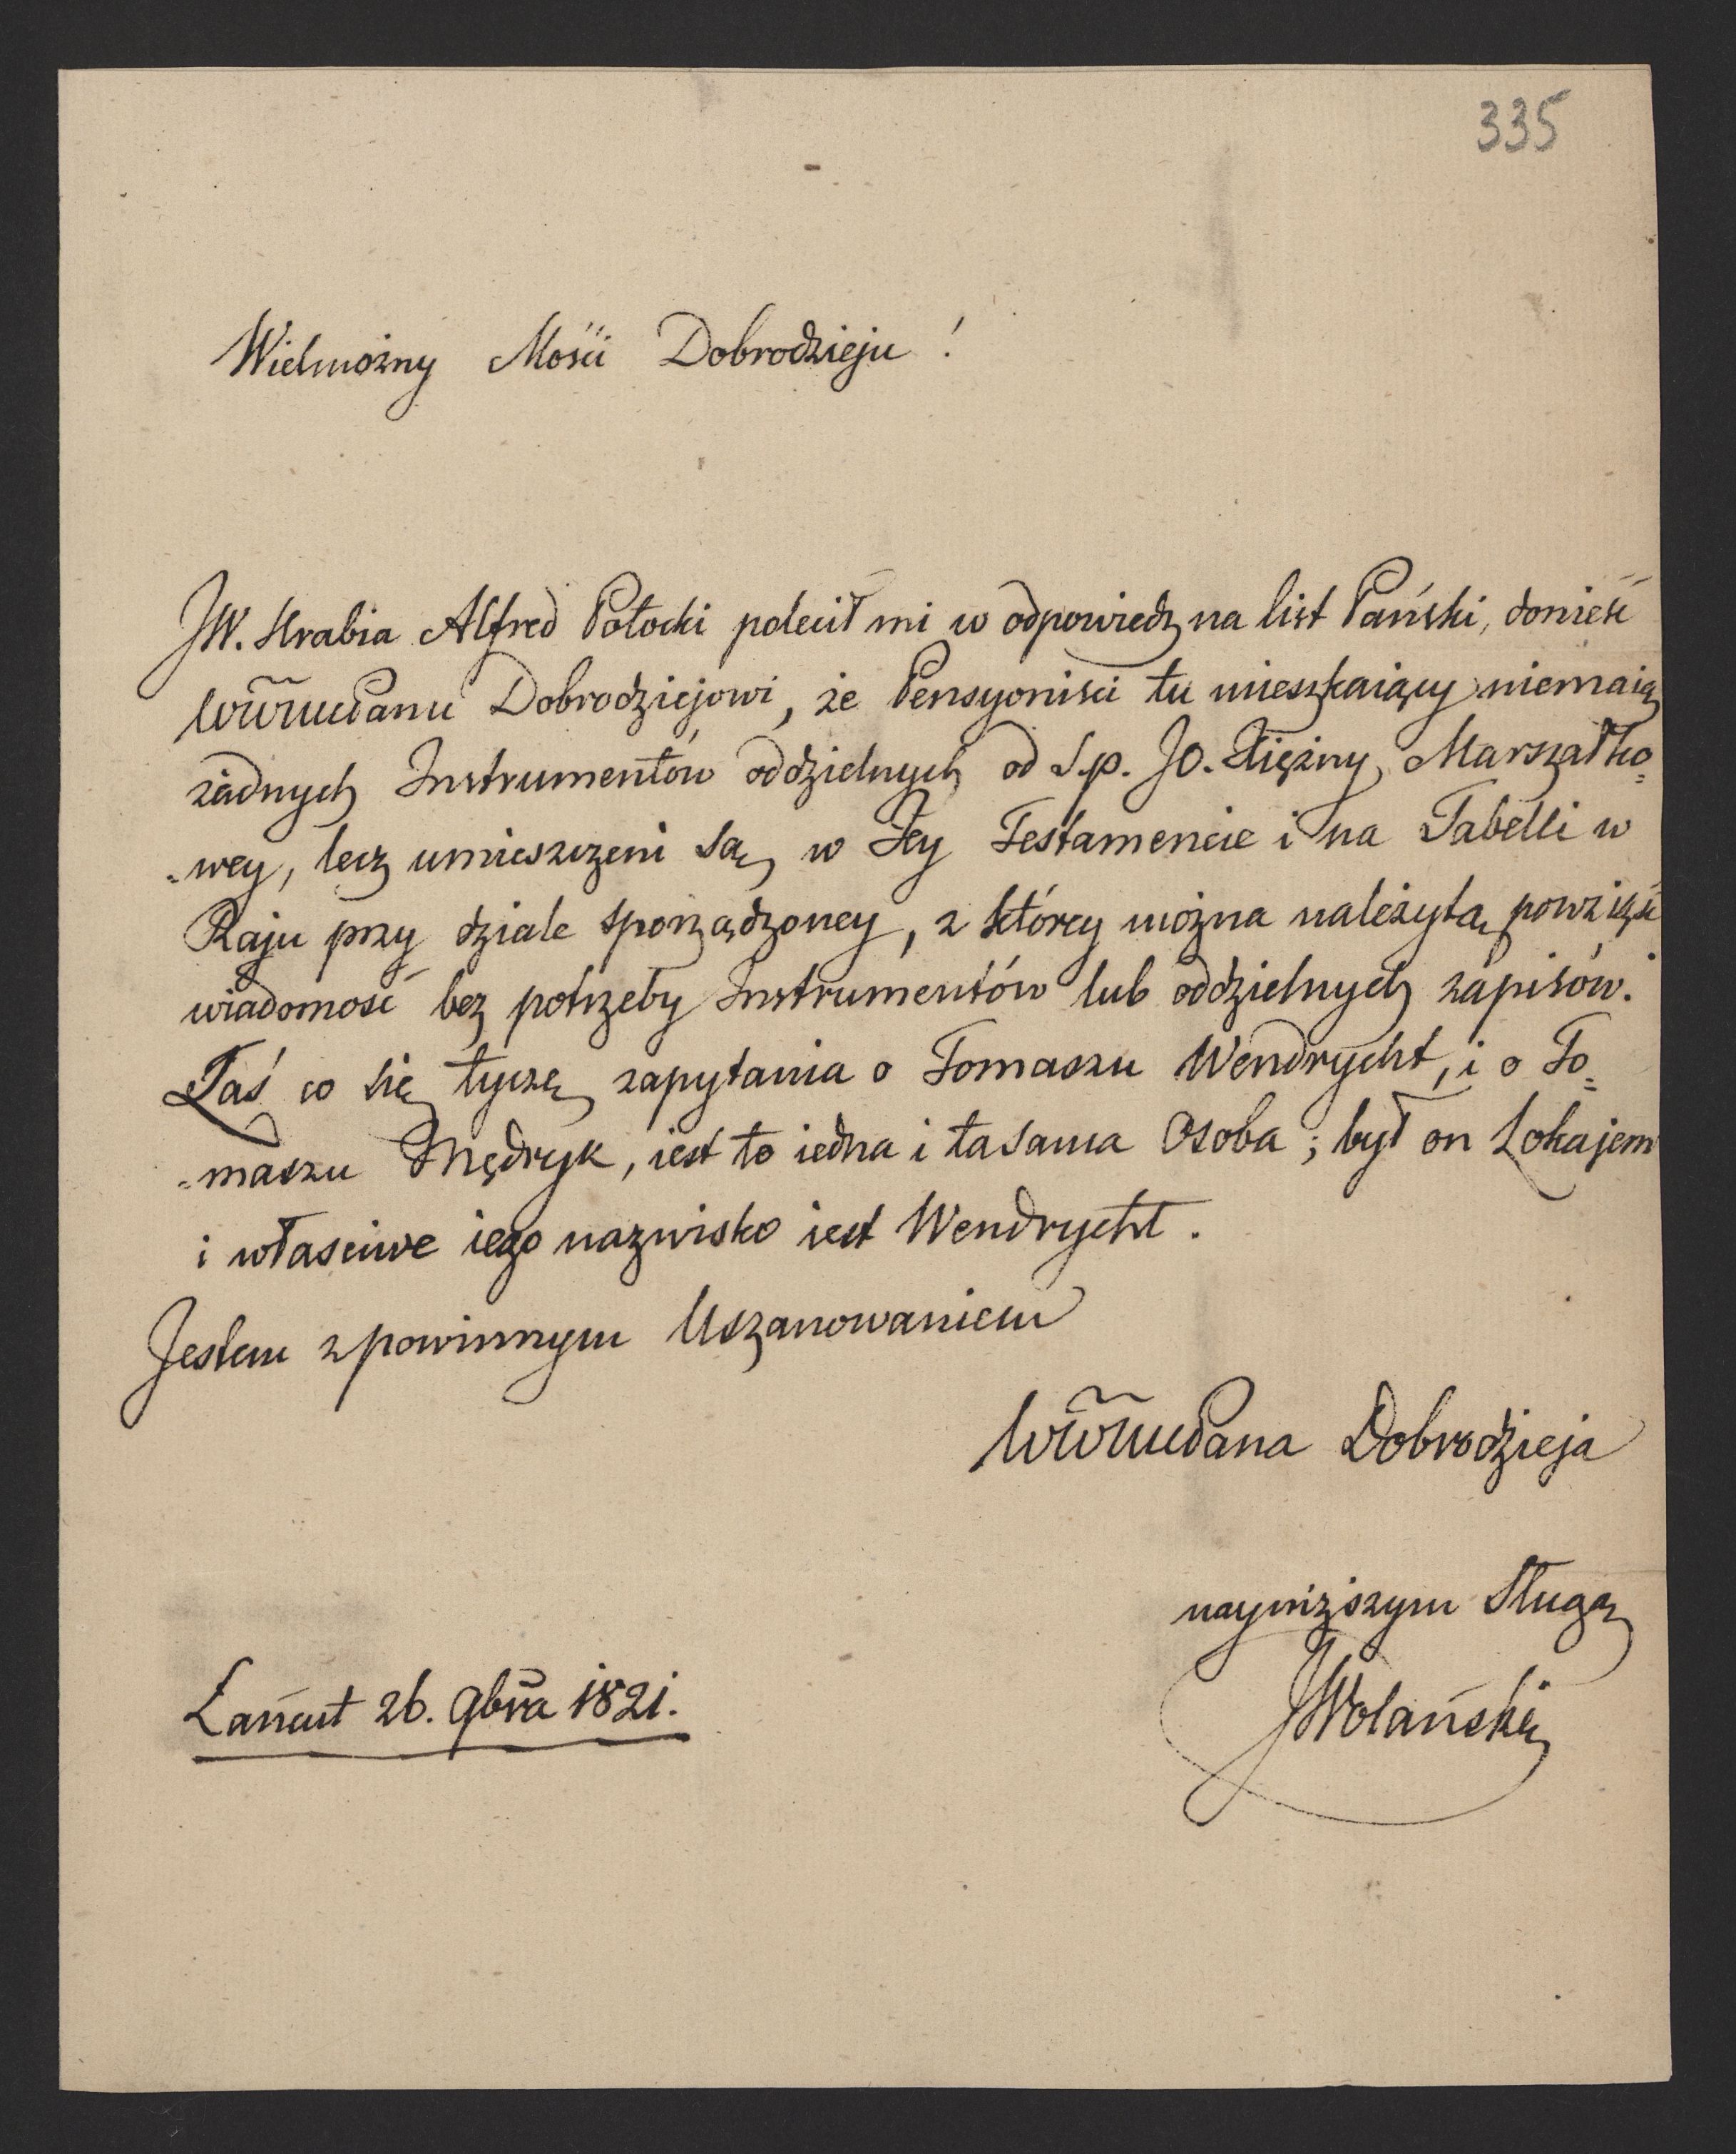 335
Wielmożny Mości Dobrodzieju!
JW. Hrabia Alfred Potocki polecił mi w odpowiedz na list Pański, donieść
WWmPanu Dobrodziejowi, że Pensyoniści tu mieszkaiący niemaią
żadnych Instrumentów oddzielnych od S.p. JO. Xiężny Marszałko=
=wey, lecz umieszczeni są w Jey Testamencie i na Tabelli w
Raju przy dziale sporządzoney, z którey można należytą powziąść
wiadomość bez potrzeby Instrumentów lub oddzielnych zapisów.
Zaś co się tyczę zapytania o Tomaszu Wendrycht, i o To=
=maszu Mędryk, iest to iedna i tasama Osoba; był on Lokajem
i własciwe iego nazwisko iest Wendrycht.
Jestem z powinnym Uszanowaniem
WWmPana Dobrodzieja
nayniższym Sługą
JWolański
Łańcut 26. 9bra 1821.